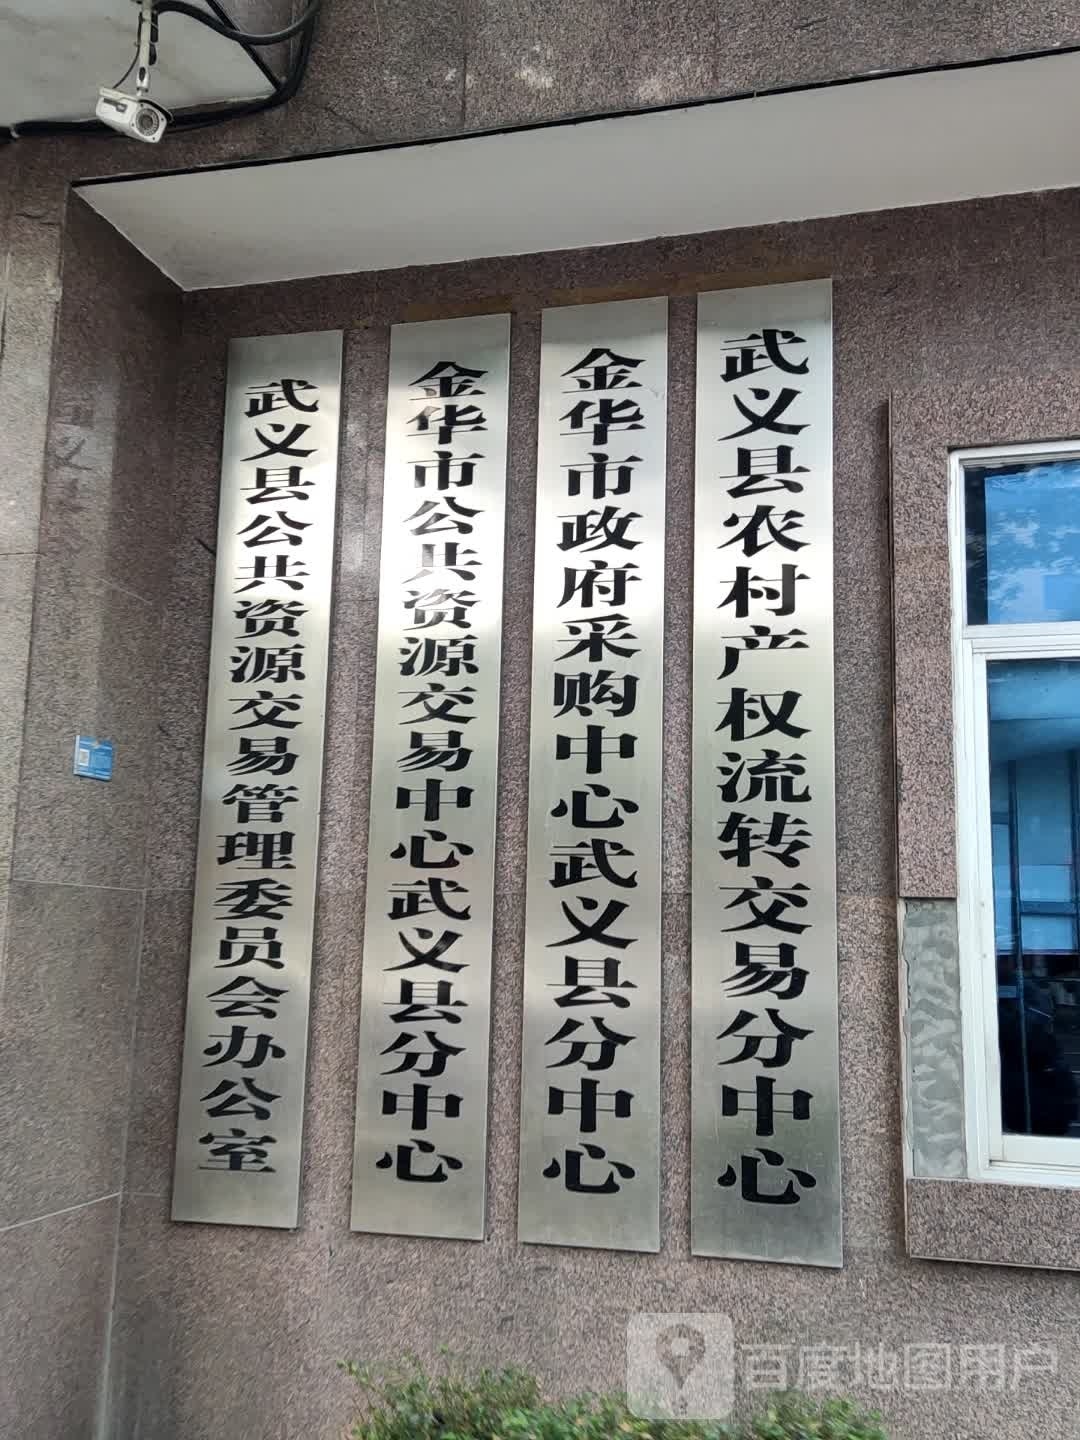 武义县公共资源交易管理委员会办公室
金华市公共资源交易中心武义县分中心
金华市政府采购中心武义县分中心
武义县农村产权流转交易分中心
百度地图用户